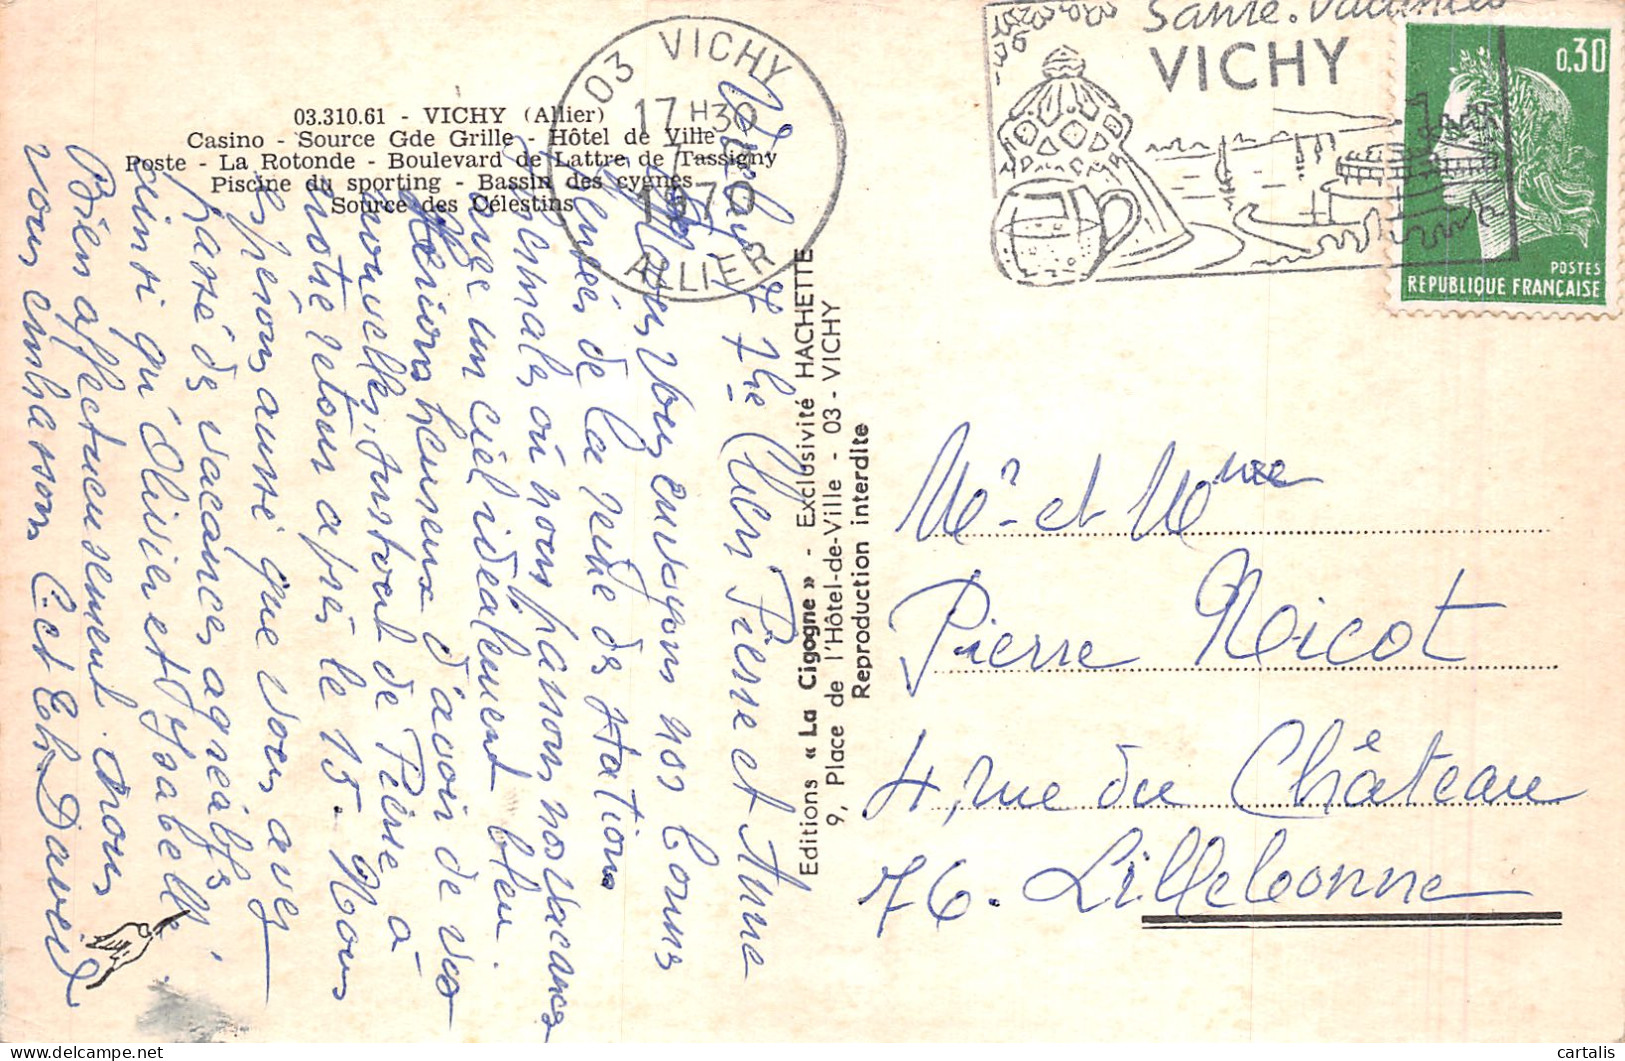 03.310.61 - VICHY (Allier)
Casino - Source Gde Grille - Hôtel de Ville
Poste - La Rotonde - Boulevard de Lattre de Tassigny
Piscine du sporting - Bassin des cygnes
Source des Célestins
03 VICHY
17 H30
1970
ALLIER
VICHY
0,30
POSTES
REPUBLIQUE FRANÇAISE
Vichy
Pierre et Anne
Nous vous envoyons nos bonnes
pensées de la reine des stations
thermales où nous passons nos vacances
sous un ciel idéalement bleu.
Serions heureux d'avoir de vos
nouvelles, surtout de Pierre à
notre retour après le 15. Nous
espérons aussi que vous avez
passé de vacances agréables
ainsi qu'Olivier et Isabelle
Bien affectueusement. Nous
vous embrassons
David
Editions « La Cigogne » - Exclusivité HACHETTE
9, Place de l'Hôtel-de-Ville - 03 - VICHY
Reproduction interdite
Mr et Mme
Pierre Nicot
4, rue du Château
76. Lillebonne
cartalis